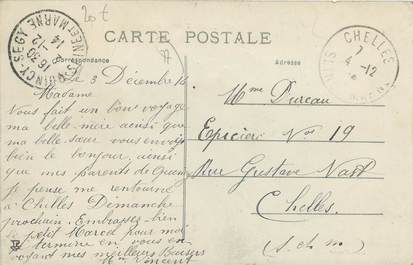 20 €
CARTE POSTALE
Correspondance
Adresse
QUINCY-SEGY (SEINE-ET-MARNE)
16 30
14
CHELLES
7
4 -12
Le 3 Décembre 14
Madame
Nous fait un bon voyage
ma belle mère ainsi que
ma belle sœur vous envoye
bien le bonjour, ainsi
que mes parents de Quincy
Je pense me retourné
à Chelles Dimanche
prochain. Embrassez bien
le petit Marcel pour moi
termine en vous en
voyant mes meilleurs Baisers
Mme Vincent
Mme Dureau
Epicier Nos 19
Rue Gustave Nast
Chelles.
(S. et M)